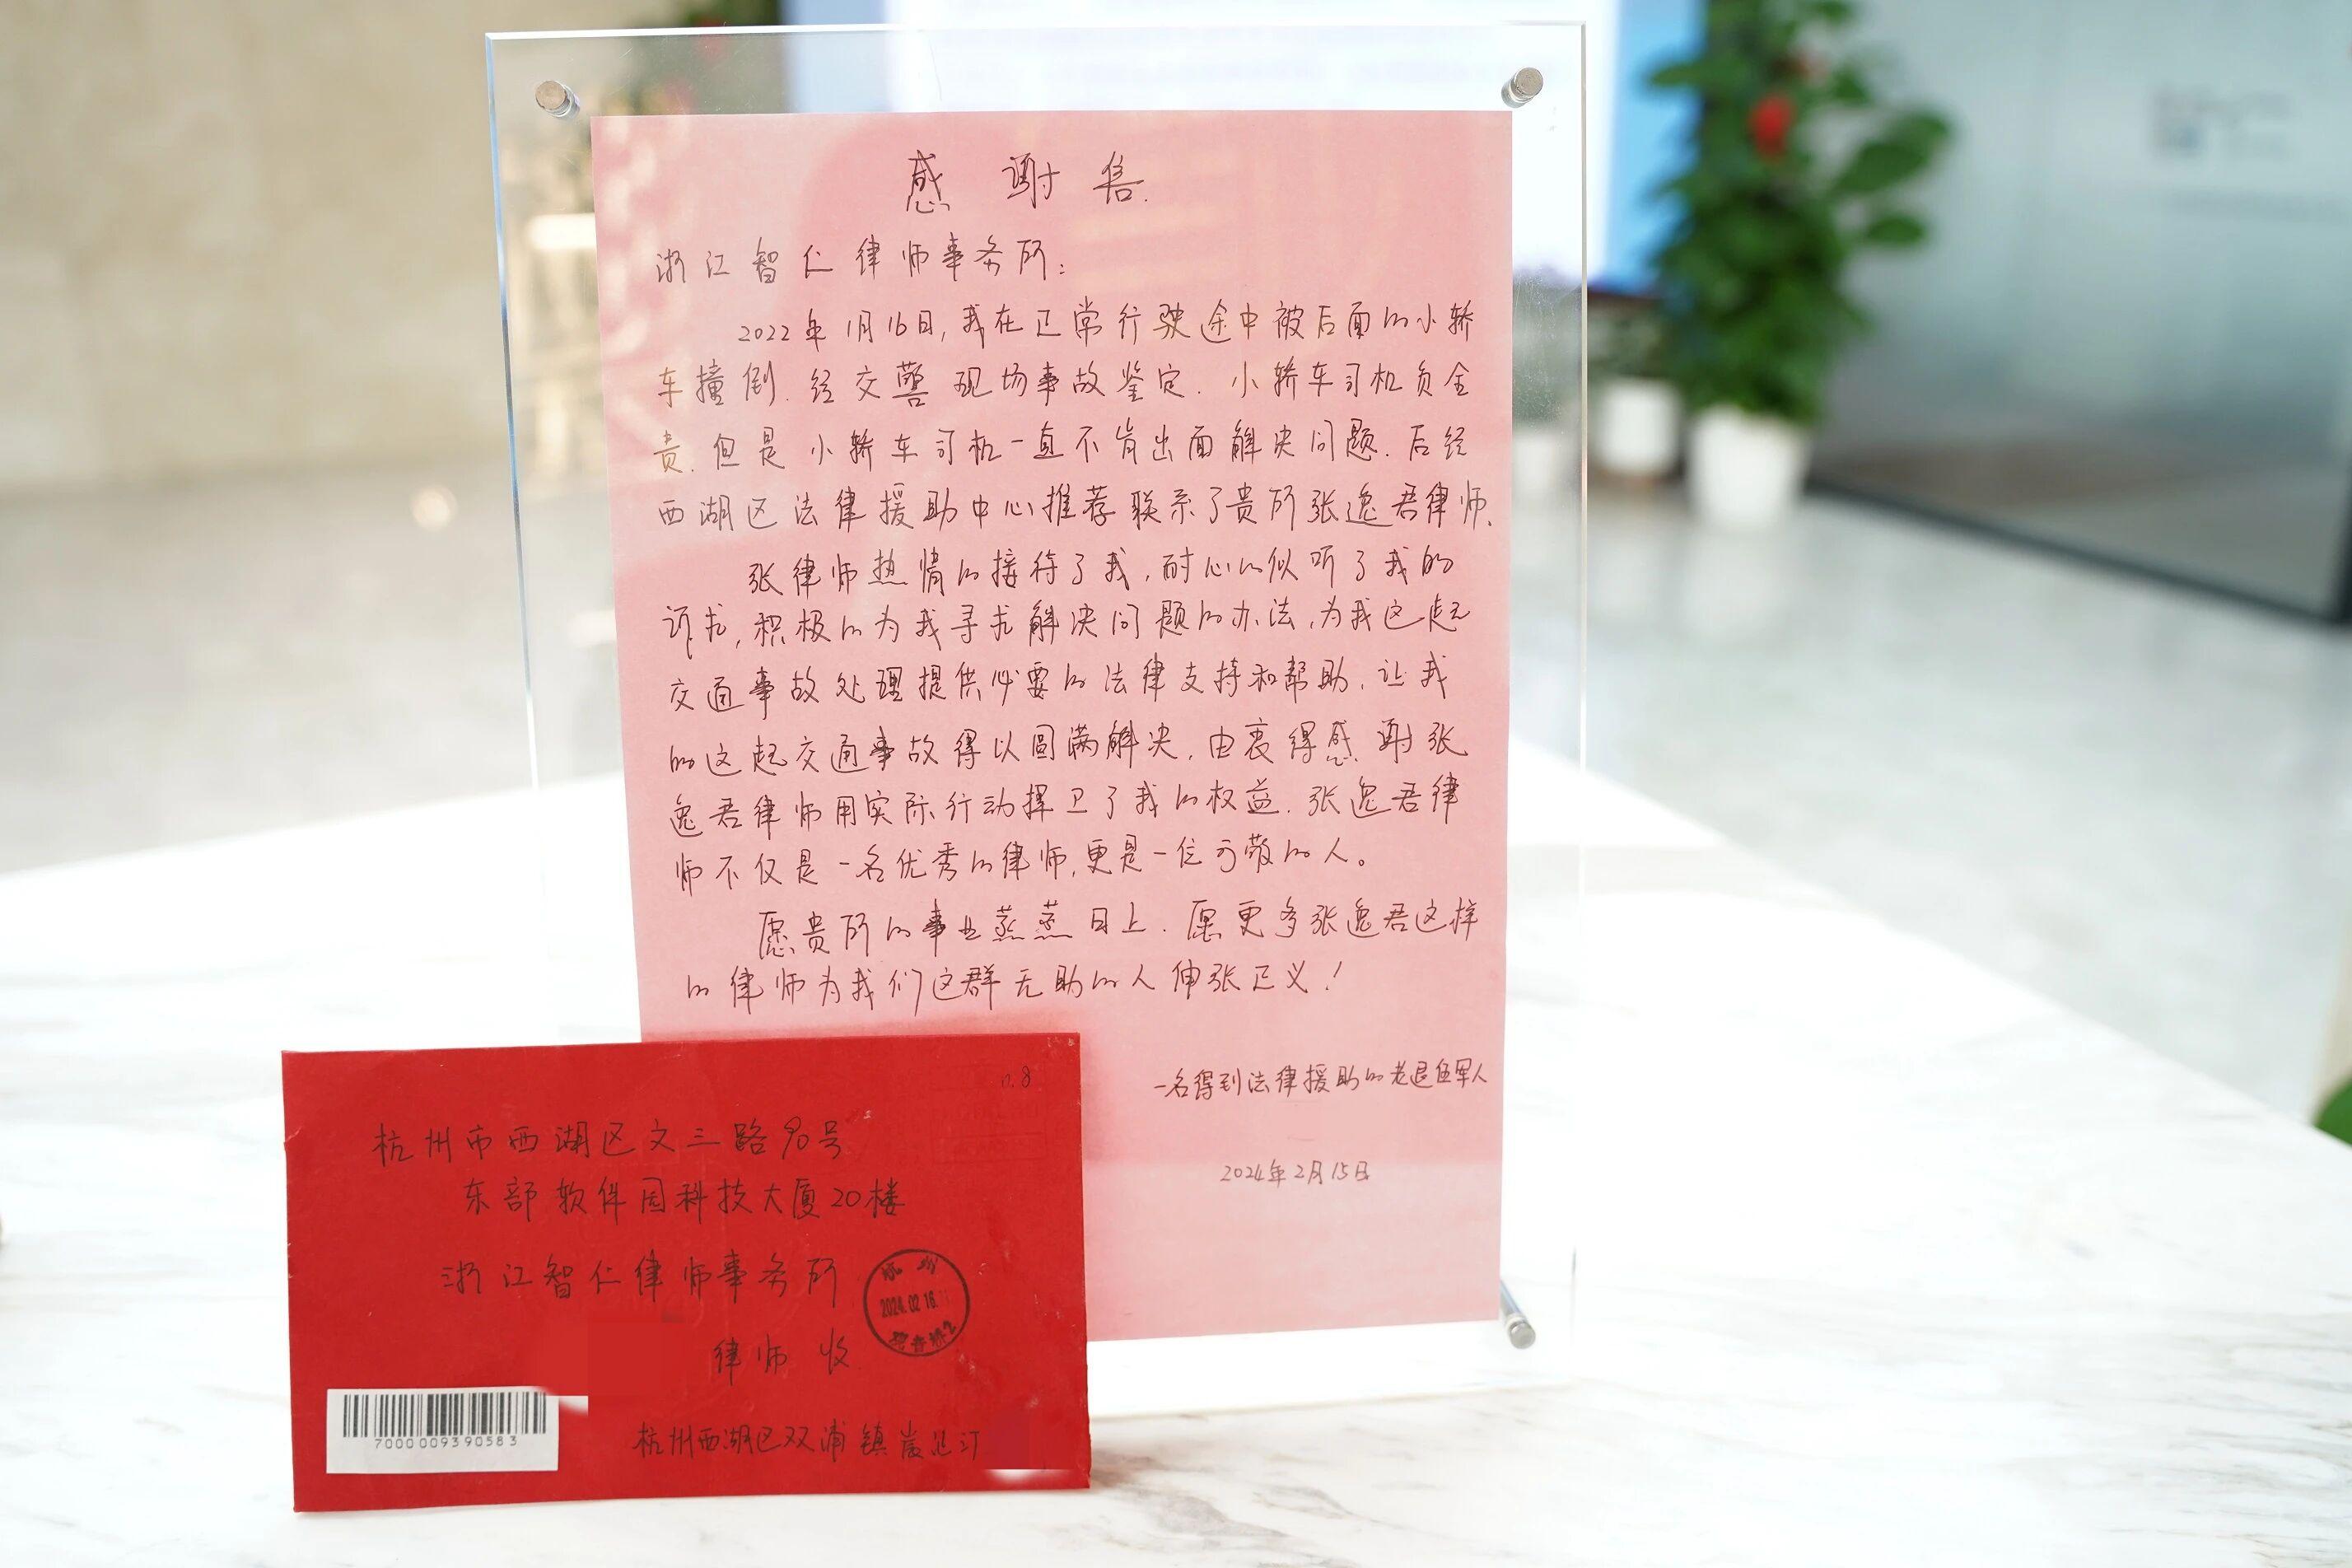 感谢信
浙江智仁律师事务所：
2022年1月16日，我在正常行驶途中被后面的小轿
车撞倒．经交警现场事故鉴定．小轿车司机负全
责．但是小轿车司机一直不肯出面解决问题．后经
西湖区法律援助中心推荐联系了贵所张逸君律师．
张律师热情的接待了我，耐心的倾听了我的
诉求，积极的为我寻求解决问题的办法，为我这起
交通事故处理提供必要的法律支持和帮助，让我
的这起交通事故得以圆满解决，由衷得感谢张
逸君律师用实际行动捍卫了我的权益．张逸君律
师不仅是一名优秀的律师，更是一位可敬的人。
愿贵所的事业蒸蒸日上．愿更多张逸君这样
的律师为我们这群无助的人伸张正义！
一名得到法律援助的老退伍军人
2024年2月15日
杭州市西湖区文三路90号
东部软件园科技大厦20楼
浙江智仁律师事务所
律师 收
杭州
2024.02.16
7000009390583
杭州西湖区双浦镇